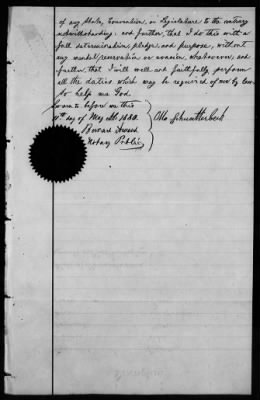 of any State, Convention, or Legislature to the contrary
notwithstanding; and further, that I do this with a
full determination, pledge, and purpose, without
any mental reservation or evasion whatsoever; and
further that I will well and faithfully perform
all the duties which may be required of me by law.
So help me God.
Sworn to before me this
11th day of May 1880.
Otto
Notary Public